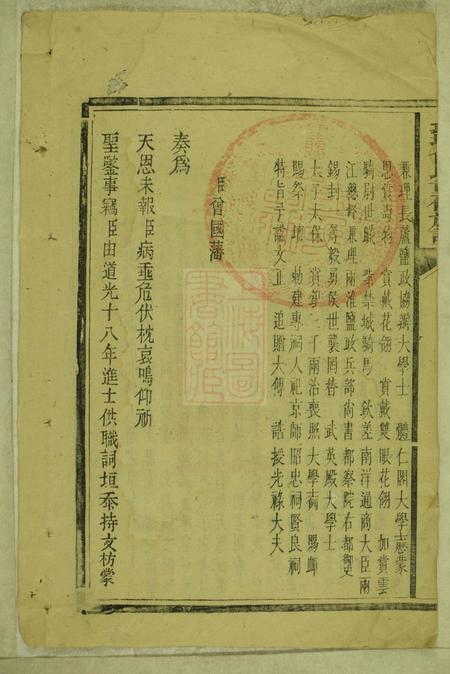 兼理長蘆鹽政協辦大學士 體仁閣大學士歷蒙
恩賞 賞戴花翎 賞戴雙眼花翎 加賞雲
騎尉世職 紫禁城騎馬 欽差南洋通商大臣兩
江總督兼理兩淮鹽政兵部尚書都察院右都御史
錫封一等毅勇侯世襲罔替 武英殿大學士
太子太保 賞銀三千兩治喪照大學士 賜卹
賜祭 勅建專祠入祀京師昭忠祠賢良祠
特旨予諡文正 追贈大傅 誥授光祿大夫
臣曾國藩
奏為
天恩未報臣病垂危伏枕哀鳴仰祈
聖鑒事竊臣由道光十八年進士供職詞垣忝持文枋蒙